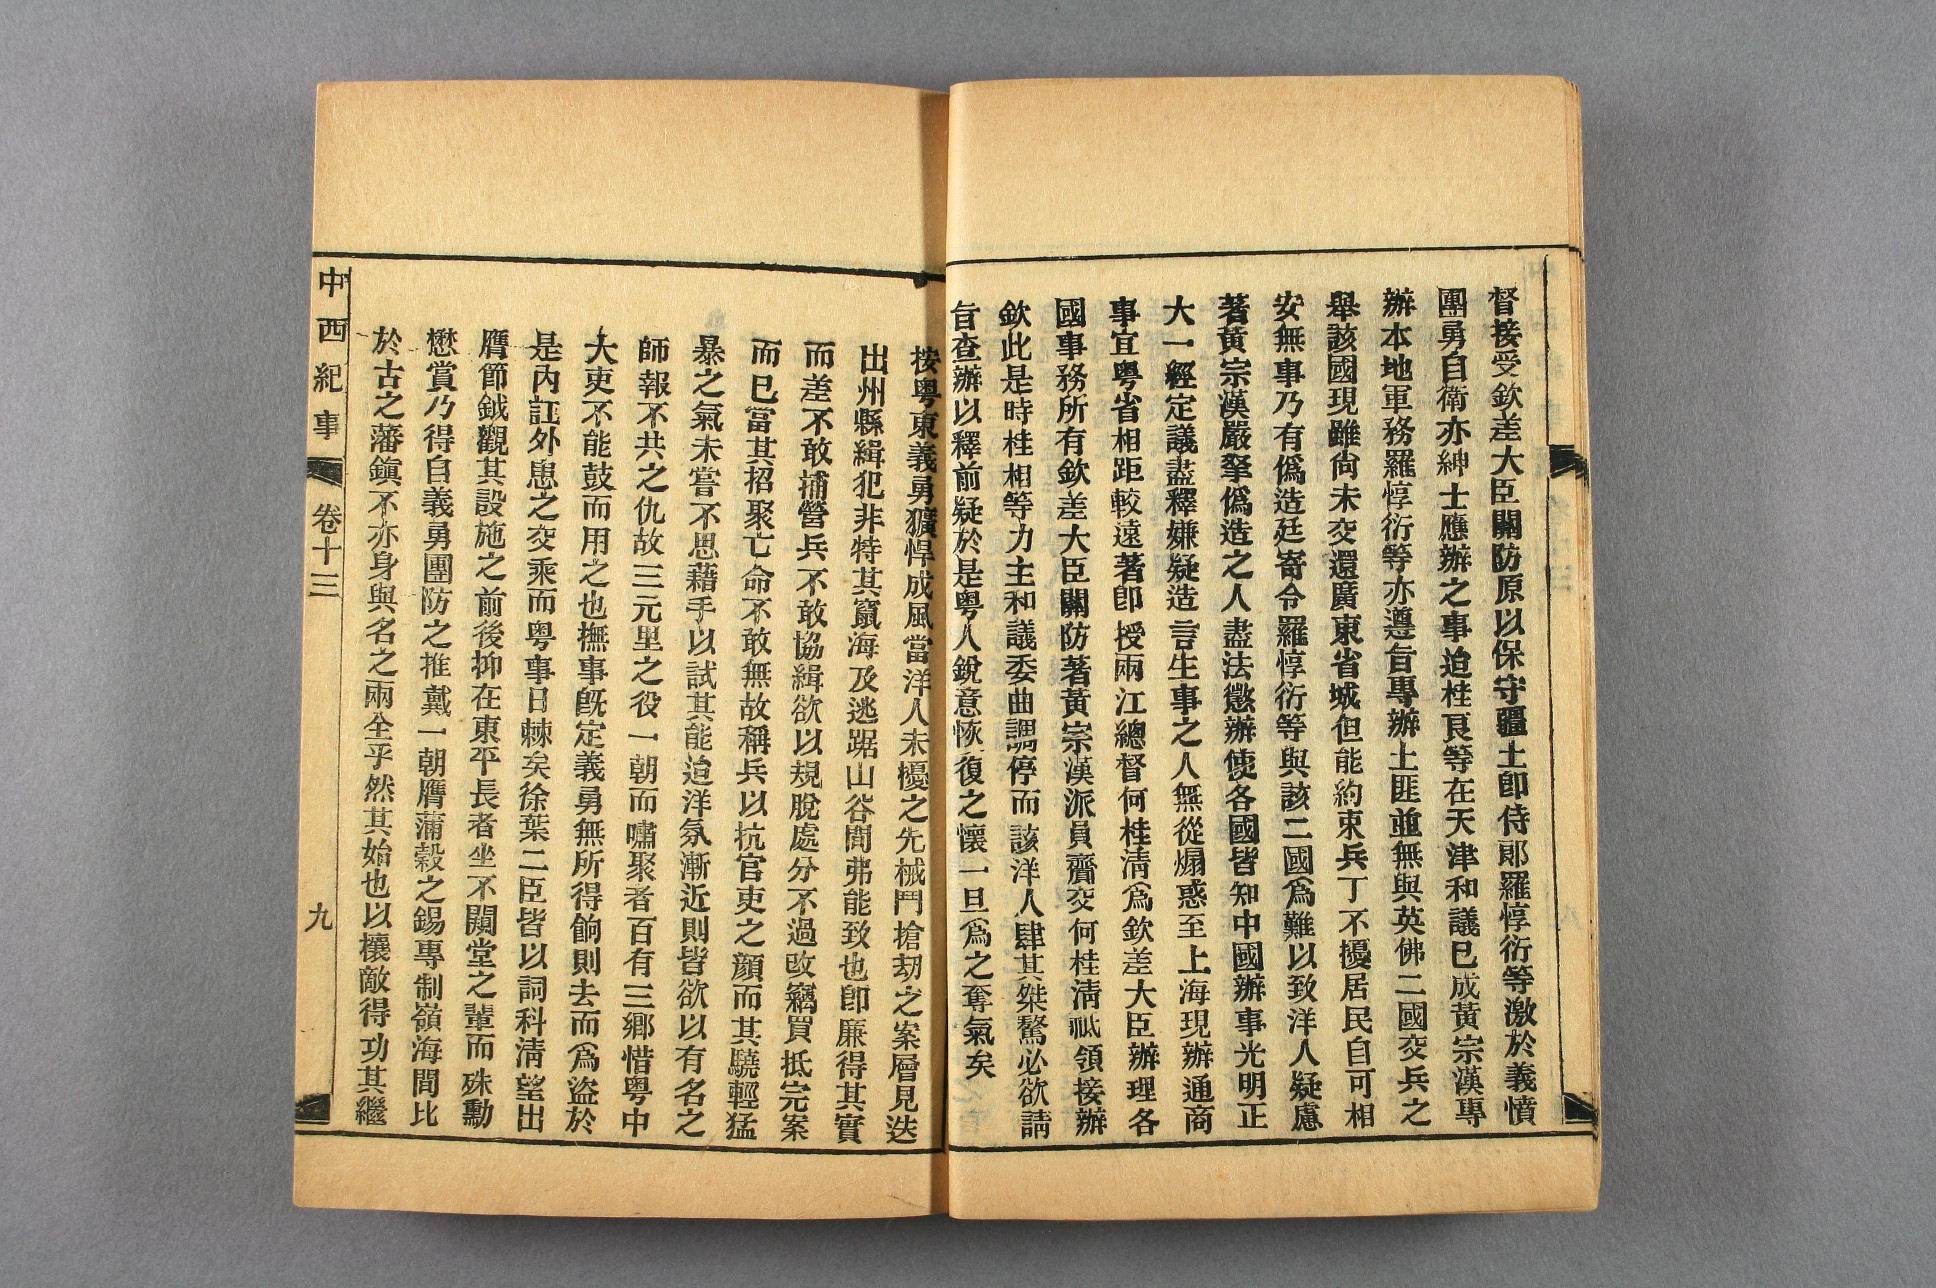 督接受欽差大臣關防原以保守疆土卽侍郎羅惇衍等激於義憤
團勇自衛亦紳士應辦之事迨桂良等在天津和議已成黃宗漢專
辦本地軍務羅惇衍等亦遵旨專辦土匪並無與英佛二國交兵之
舉該國現雖尙未交還廣東省城但能約束兵丁不擾居民自可相
安無事乃有僞造廷寄令羅惇衍等與該二國爲難以致洋人疑慮
著黃宗漢嚴拏僞造之人盡法懲辦使各國皆知中國辦事光明正
大一經定議盡釋嫌疑造言生事之人無從煽惑至上海現辦通商
事宜粵省相距較遠著卽授兩江總督何桂淸爲欽差大臣辦理各
國事務所有欽差大臣關防著黃宗漢派員齎交何桂淸祗領接辦
欽此是時桂相等力主和議委曲調停而該洋人肆其桀驁必欲請
旨查辦以釋前疑於是粵人銳意恢復之懷一旦爲之奪氣矣
按粵東義勇獷悍成風當洋人未擾之先械鬥搶刼之案層見迭
出州縣緝犯非特其竄海及逃踞山谷間弗能致也卽廉得其實
而差不敢捕營兵不敢協緝欲以規脫處分不過改竊買抵完案
而已當其招聚亡命不敢無故稱兵以抗官吏之顏而其驍輕猛
暴之氣未嘗不思藉手以試其能迨洋氛漸近則皆欲以有名之
師報不共之仇故三元里之役一朝而嘯聚者百有三鄉惜粵中
大吏不能鼓而用之也撫事旣定義勇無所得餉則去而爲盜於
是內訌外患之交乘而粵事日棘矣徐葉二臣皆以詞科淸望出
膺節鉞觀其設施之前後抑在東平長者坐不闚堂之輩而殊勳
懋賞乃得自義勇團防之推戴一朝膺蒲穀之錫專制嶺海間比
於古之藩鎭不亦身與名之兩全乎然其始也以攘敵得功其繼
中西紀事 卷十三 九